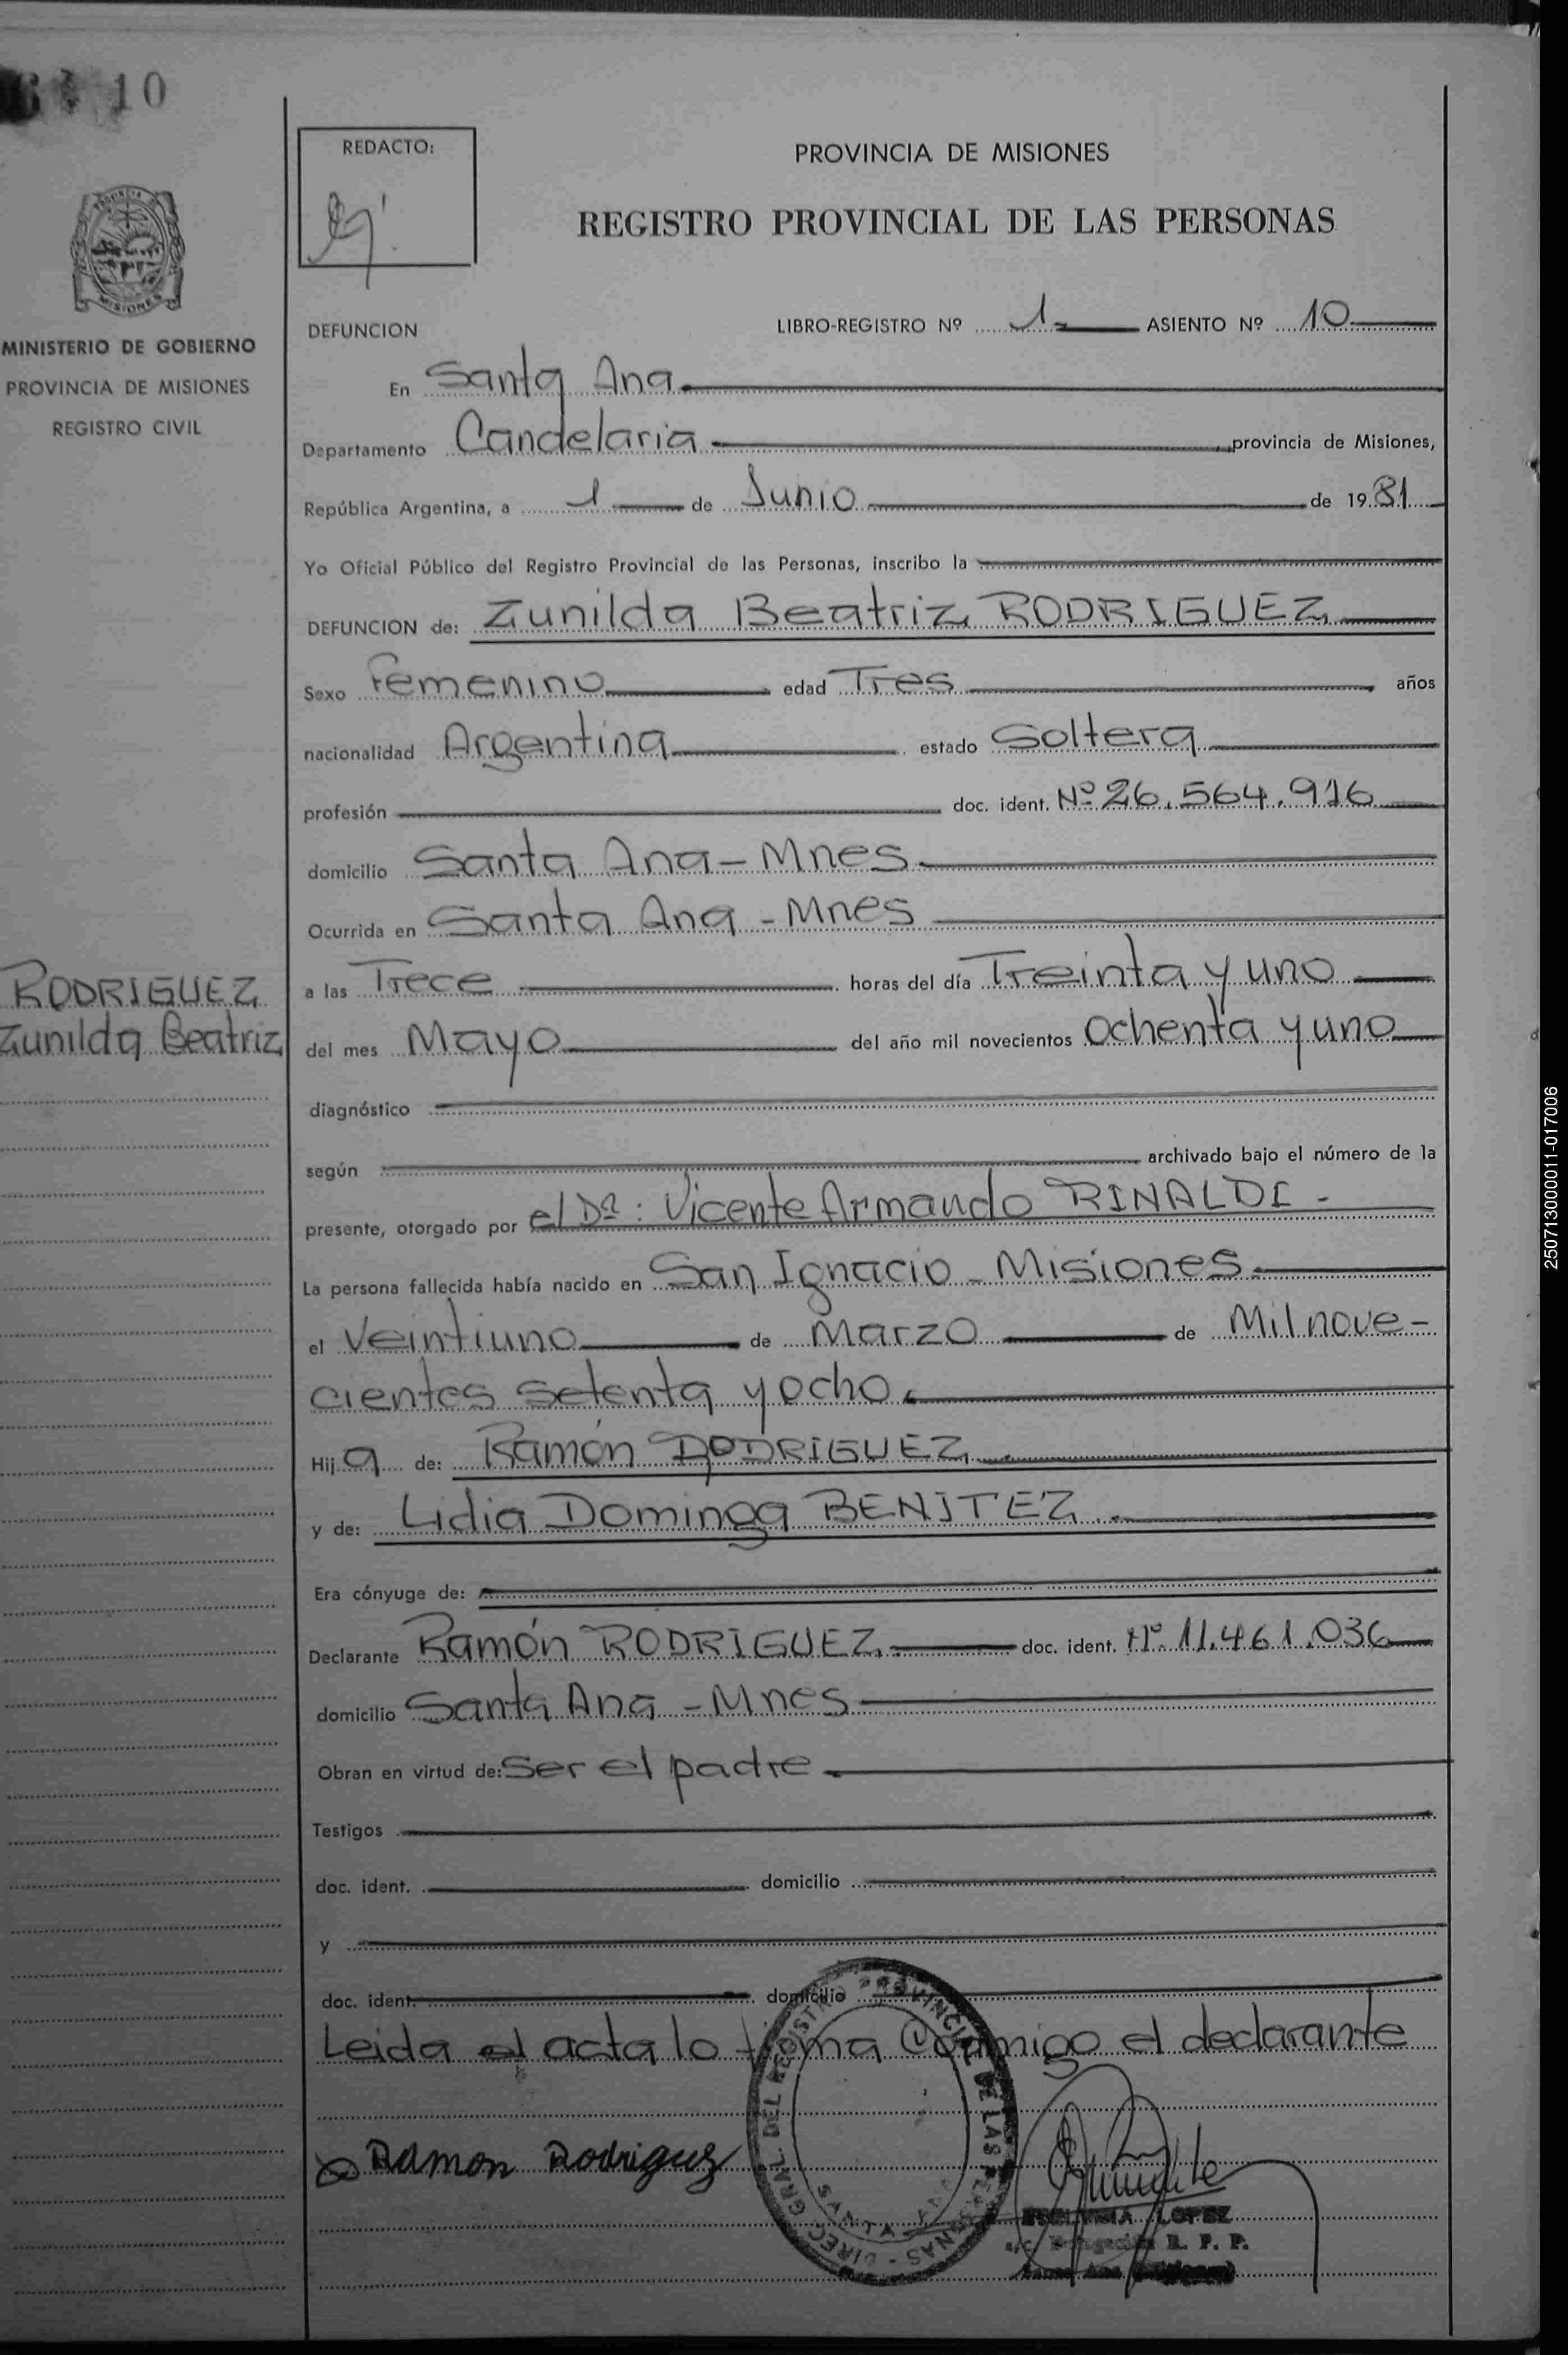 10
REDACTO:
PROVINCIA DE MISIONES
REGISTRO PROVINCIAL DE LAS PERSONAS
MISIONES
MINISTERIO DE GOBIERNO
PROVINCIA DE MISIONES
REGISTRO CIVIL
DEFUNCION LIBRO-REGISTRO Nº 1 ASIENTO Nº 10
En Santa Ana
Departamento Candelaria provincia de Misiones,
República Argentina, a 1 de Junio de 1981
Yo Oficial Público del Registro Provincial de las Personas, inscribo la
DEFUNCION de: Zunilda Beatriz RODRIGUEZ
Sexo Femenino edad Tres años
nacionalidad Argentina estado Soltera
profesión doc. ident. Nº 26.564.916
domicilio Santa Ana - Mnes
Ocurrida en Santa Ana - Mnes
RODRIGUEZ
Zunilda Beatriz
a las Trece horas del día Treinta y uno
del mes Mayo del año mil novecientos Ochenta y uno
diagnóstico
según archivado bajo el número de la
presente, otorgado por el Dº: Vicente Armando RINALDI -
La persona fallecida había nacido en San Ignacio - Misiones.
el Veintiuno de Marzo de Mil nove-
cientos setenta y ocho.
Hija de: Ramón RODRIGUEZ
y de: Lidia Dominga BENITEZ
Era cónyuge de:
Declarante Ramón RODRIGUEZ doc. ident. Nº 11.461.036
domicilio Santa Ana - Mnes
Obran en virtud de: Ser el padre
Testigos
doc. ident. domicilio
y
doc. ident. domicilio
Leida el acta lo firma Conmigo el declarante
Ramon Rodriguez
DIREC. GRAL. DEL REGISTRO PROVINCIAL DE LAS PERSONAS - SANTA ANA
LOPEZ
Delegación R. P. P.
Santa Ana
250713000011-017006